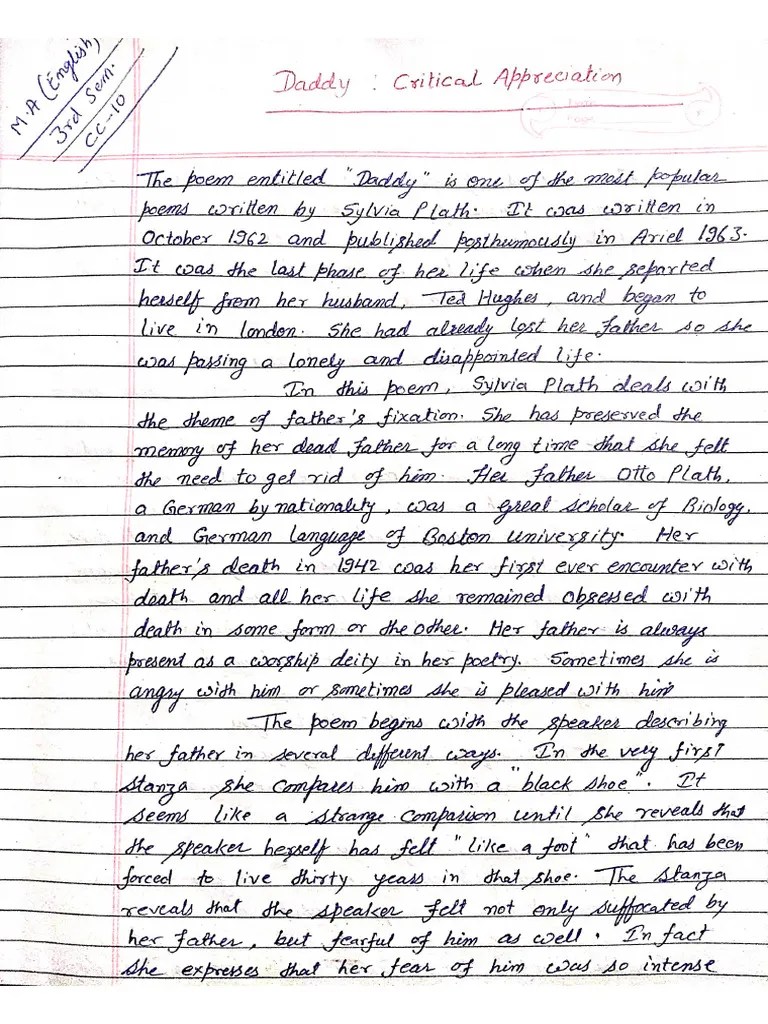 M.A (English)
3rd Sem.
CC-10
Daddy : Critical Appreciation
The poem entitled "Daddy" is one of the most popular
poems written by Sylvia Plath. It was written in
October 1962 and published posthumously in Ariel 1963.
It was the last phase of her life when she separted
herself from her husband, Ted Hughes, and began to
live in london. She had already lost her father so she
was passing a lonely and disappointed life.
In this poem, Sylvia Plath deals with
the theme of father's fixation. She has preserved the
memory of her dead father for a long time that she felt
the need to get rid of him. Her father Otto Plath,
a German by nationality, was a great scholar of Biology,
and German language of Boston University. Her
father's death in 1942 was her first ever encounter with
death and all her life she remained obsessed with
death in some form or the other. Her father is always
present as a worship deity in her poetry. Sometimes she is
angry with him or sometimes she is pleased with him
The poem begins with the speaker describing
her father in several different ways. In the very first
stanza she compares him with a "black shoe". It
seems like a strange comparison until she reveals that
the speaker herself has felt "like a foot" that has been
forced to live thirty years in that shoe. The stanza
reveals that the speaker felt not only suffocated by
her father, but fearful of him as well. In fact
she expresses that her fear of him was so intense